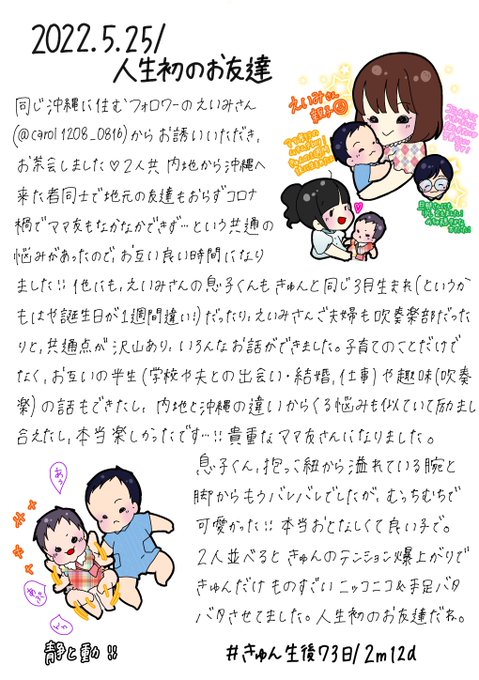 2022.5.25/
人生初のお友達
同じ沖縄に住むフォロワーのえいみさん
(@carol1208_0816)からお誘いいただき、
お茶会しました♡2人共 内地から沖縄へ
来た者同士で地元の友達もおらずコロナ
禍でママ友もなかなかできず…という共通の
悩みがあったので、お互い良い時間になり
ました!!他にも、えいみさんの息子くんもきゅんと同じ3月生まれ(というか
もはや誕生日が1週間違い!)だったり、えいみさんご夫婦も吹奏楽部だった
りと、共通点が沢山あり、いろんなお話ができました。子育てのことだけで
なく、お互いの半生(学校や夫との出会い・結婚、仕事)や趣味(吹奏
楽)の話もできたし、内地と沖縄の違いからくる悩みも似ていて励まし
合えたし、本当楽しかったです…!!貴重なママ友さんになりました。
えいみさん
親子
息子くん、抱っこ紐から溢れている腕と
脚からもうバレバレでしたが、むっちむちで
可愛かった!!本当おとなしくて良い子で。
2人並べると きゅんのテンション爆上がりで
きゅんだけ ものすごい ニッコニコ&手足バタ
バタさせてました。人生初のお友達だね。
あぅ
静と動!!
#きゅん生後73日/2m12d